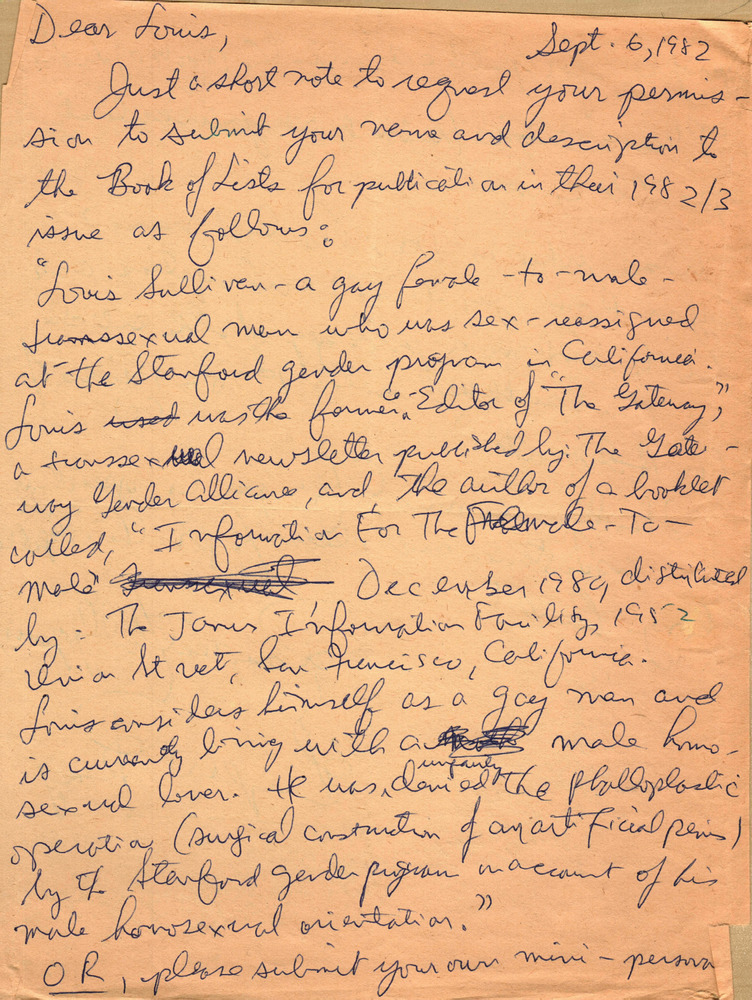 Dear Louis,
Sept. 6, 1982
Just a short note to request your permis-
sion to submit your name and description to
the Book of Lists for publication in their 1982/3
issue as follows:
"Louis Sullivan - a gay female-to-male-
transsexual man who was sex-reassigned
at the Stanford gender program in California.
Louis used was the former Editor of "The Gateway,"
a transsexual newsletter published by: The Gate-
way Gender Alliance, and the author of a booklet
called, "Information For The Female-To-
Male" transsexual December 1980, distributed
by: The Janus Information Facility, 1952
Union Street, San Francisco, California.
Louis considers himself as a gay man and
is currently living with a male homo-
sexual lover. He was unfairly denied the phalloplastic
operation (surgical construction of an artificial penis)
by the Stanford gender program on account of his
male homosexual orientation."
OR, please submit your own mini-persona